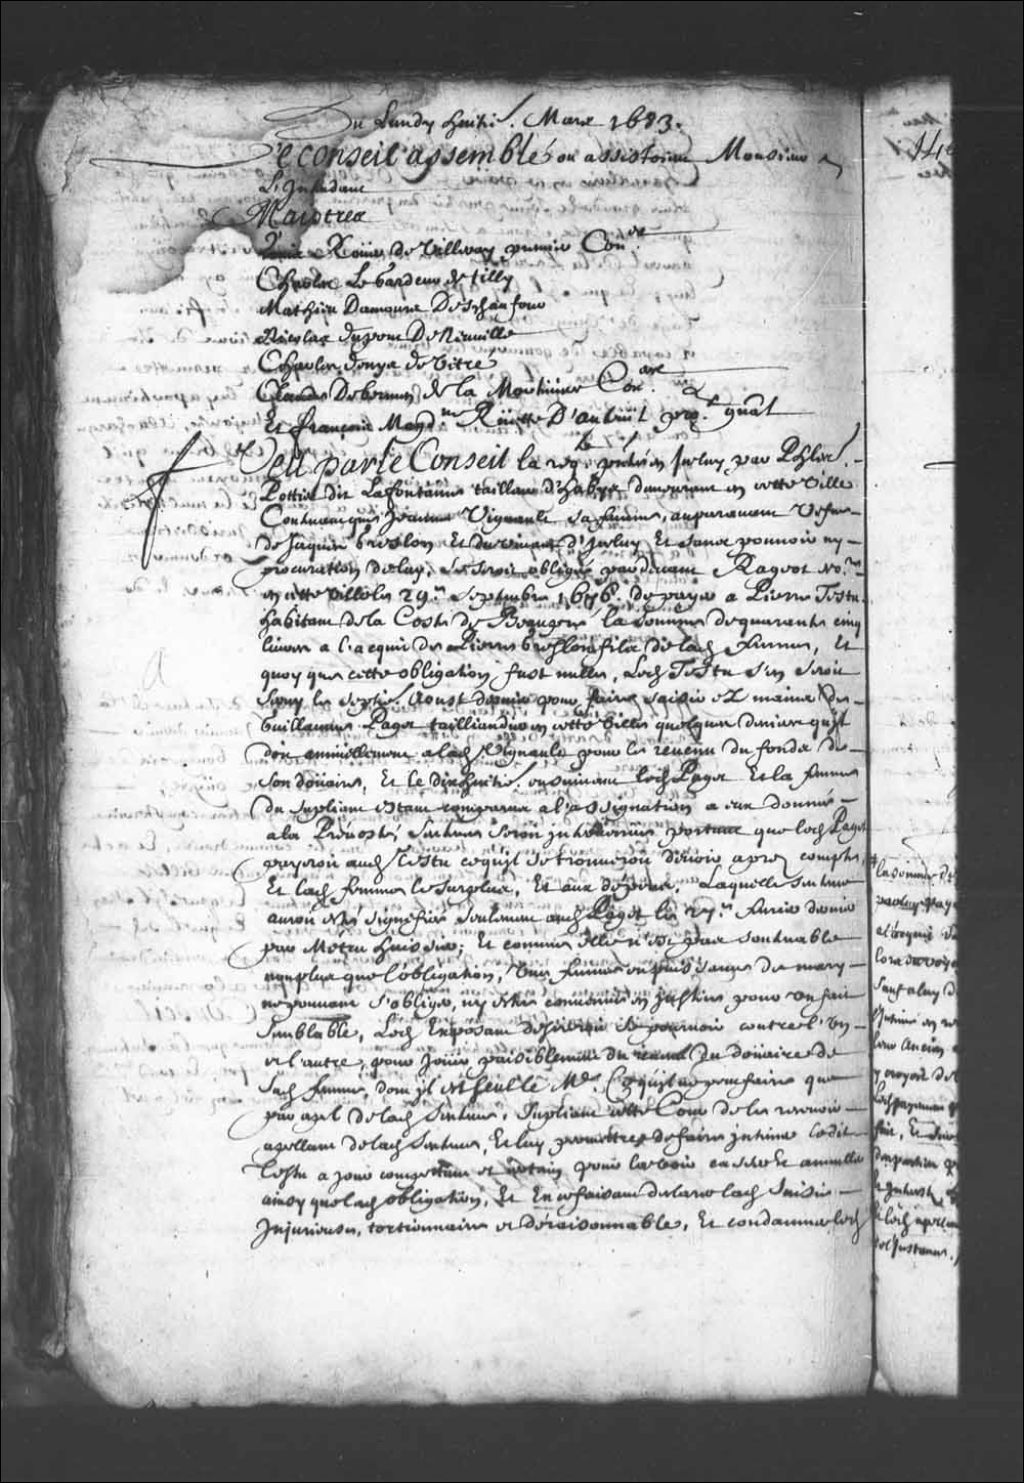 Du Lundy huitie. Mars 1683.
Le conseil assemblé ou assistoient Monsieur
L'Intendant
Maistres
Louis Roüer de Villeray premier Con.er
Charles Le Gardeur de Tilly
Mathieu Damours Deschaufour
Nicolas dupont De Neuville
Charles denys de Vitré
Claude De bermen de la Martiniere Con.ers
Et François Magd.ne Rüette D'auteüil pr. g.nal
Veu par le Conseil la req.te pntée en iceluy par Phles.
Pottier dit Lafontaine tailleur d'habits demeurant en cette Ville
Contenant que Jeanne Vignault sa femme, auparavant Vefve
de Jacques Greslon Et du vivant d'iceluy Et sans pouvoir ny
procuration de luy, se seroit obligée pardevant Rageot No.re
en cette Ville le 29.e Septembre 1676. de payer a Pierre Testu
habitant de la Coste de Beaupré la somme de quarante cinq
livres a l'acquit de Pierre Greslon fils de lad. femme, Et
quoy que cette obligation fust nulle, Led. Testu s'en seroit
servy le Aoust dernier pour faire saisir ez mains de
Guillaume Pagé taillandier en cette Ville quelques deniers qu'il
doit annuellement a lad. Vignault pour le revenu du fonds de
Son doüaire, Et le dixhuitie. ensuivant led. Pagé Et la femme
du Supliant estant comparus a l'assignation a eux donnée
a la Prevosté Sentence seroit intervenue portant que led. Pagé
payeroit aud. Testu ce qu'il se trouveroit devoir apres compte,
Et lad. femme le surplus, Et aux dépens. Laquelle sentence
auroit esté signefiée seulement aud. Pagé le Fevrier dernier
par Métru huissier; Et comme elle n'est pas soutenable
non plus que l'obligation, Une femme en puissance de mary
ne pouvant s'obliger, ny estre condamnée en justice pour un fait
Semblable, Led. Exposant desireroit se pourvoir contre l'un
et l'autre, pour joüir paisiblement du revenu du doüaire de
Sad. femme, dont il est seul le Me. Ce qu'il ne peut faire que
par apel de lad. Sentence, Supliant cette Cour de le recevoir
apellant de lad. Sentence, Et luy permettre de faire intimer ledit
Testu a jour competant et certain pour la voir casser Et annuller
ainsy que lad. obligation, Et En ce faisant declarer lad. Saisie
Injurieuse, tortionnaire et déraisonnable, Et condamner led.